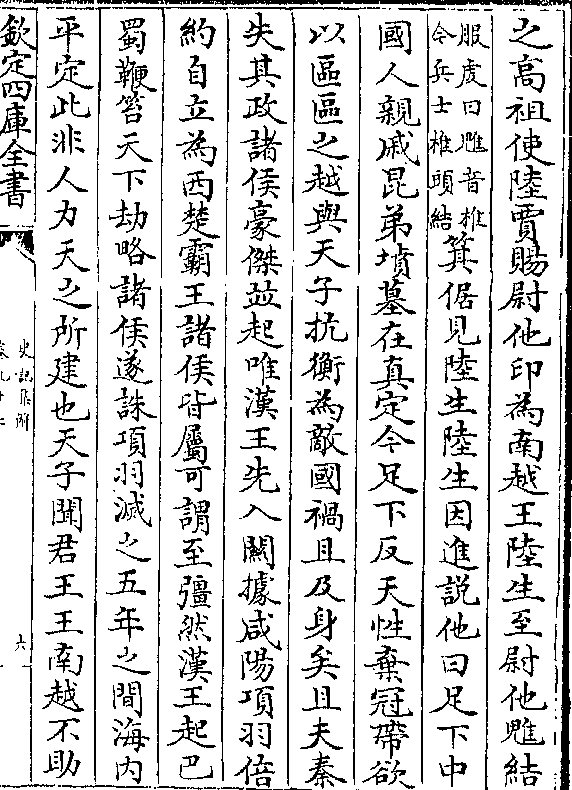 之高祖使陸賈賜尉他印為南越王陸生至尉他魋結
服虔曰魋音椎
今兵士椎頭結
箕倨見陸生陸生因進說他曰足下中
國人親戚昆弟墳墓在真定今足下反天性棄冠帶欲
以區區之越與天子抗衡為敵國禍且及身矣且夫秦
失其政諸侯豪傑並起唯漢王先入關據咸陽項羽倍
約自立為西楚霸王諸侯皆屬可謂至彊然漢王起巴
蜀鞭笞天下劫略諸侯遂誅項羽滅之五年之間海内
平定此非人力天之所建也天子聞君王王南越不助
欽定四庫全書
史記集解
六